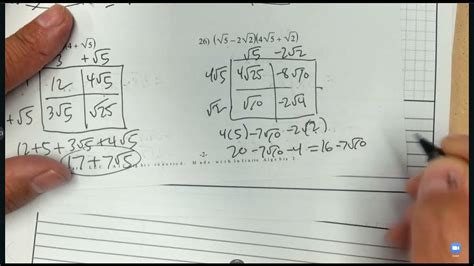 4 + √5)
3 +√5
12 4√5
+√5 3√5 √25
12+5+3√5+4√5
17+7√5
26) (√5 - 2√2)(4√5 + √2)
√5 -2√2
4√5 4√25 -8√10
√2 √10 -2√4
4(5) -7√10 -2(2)
20 -7√10 -4 = 16-7√10
-2-
Made with Infinite Algebra